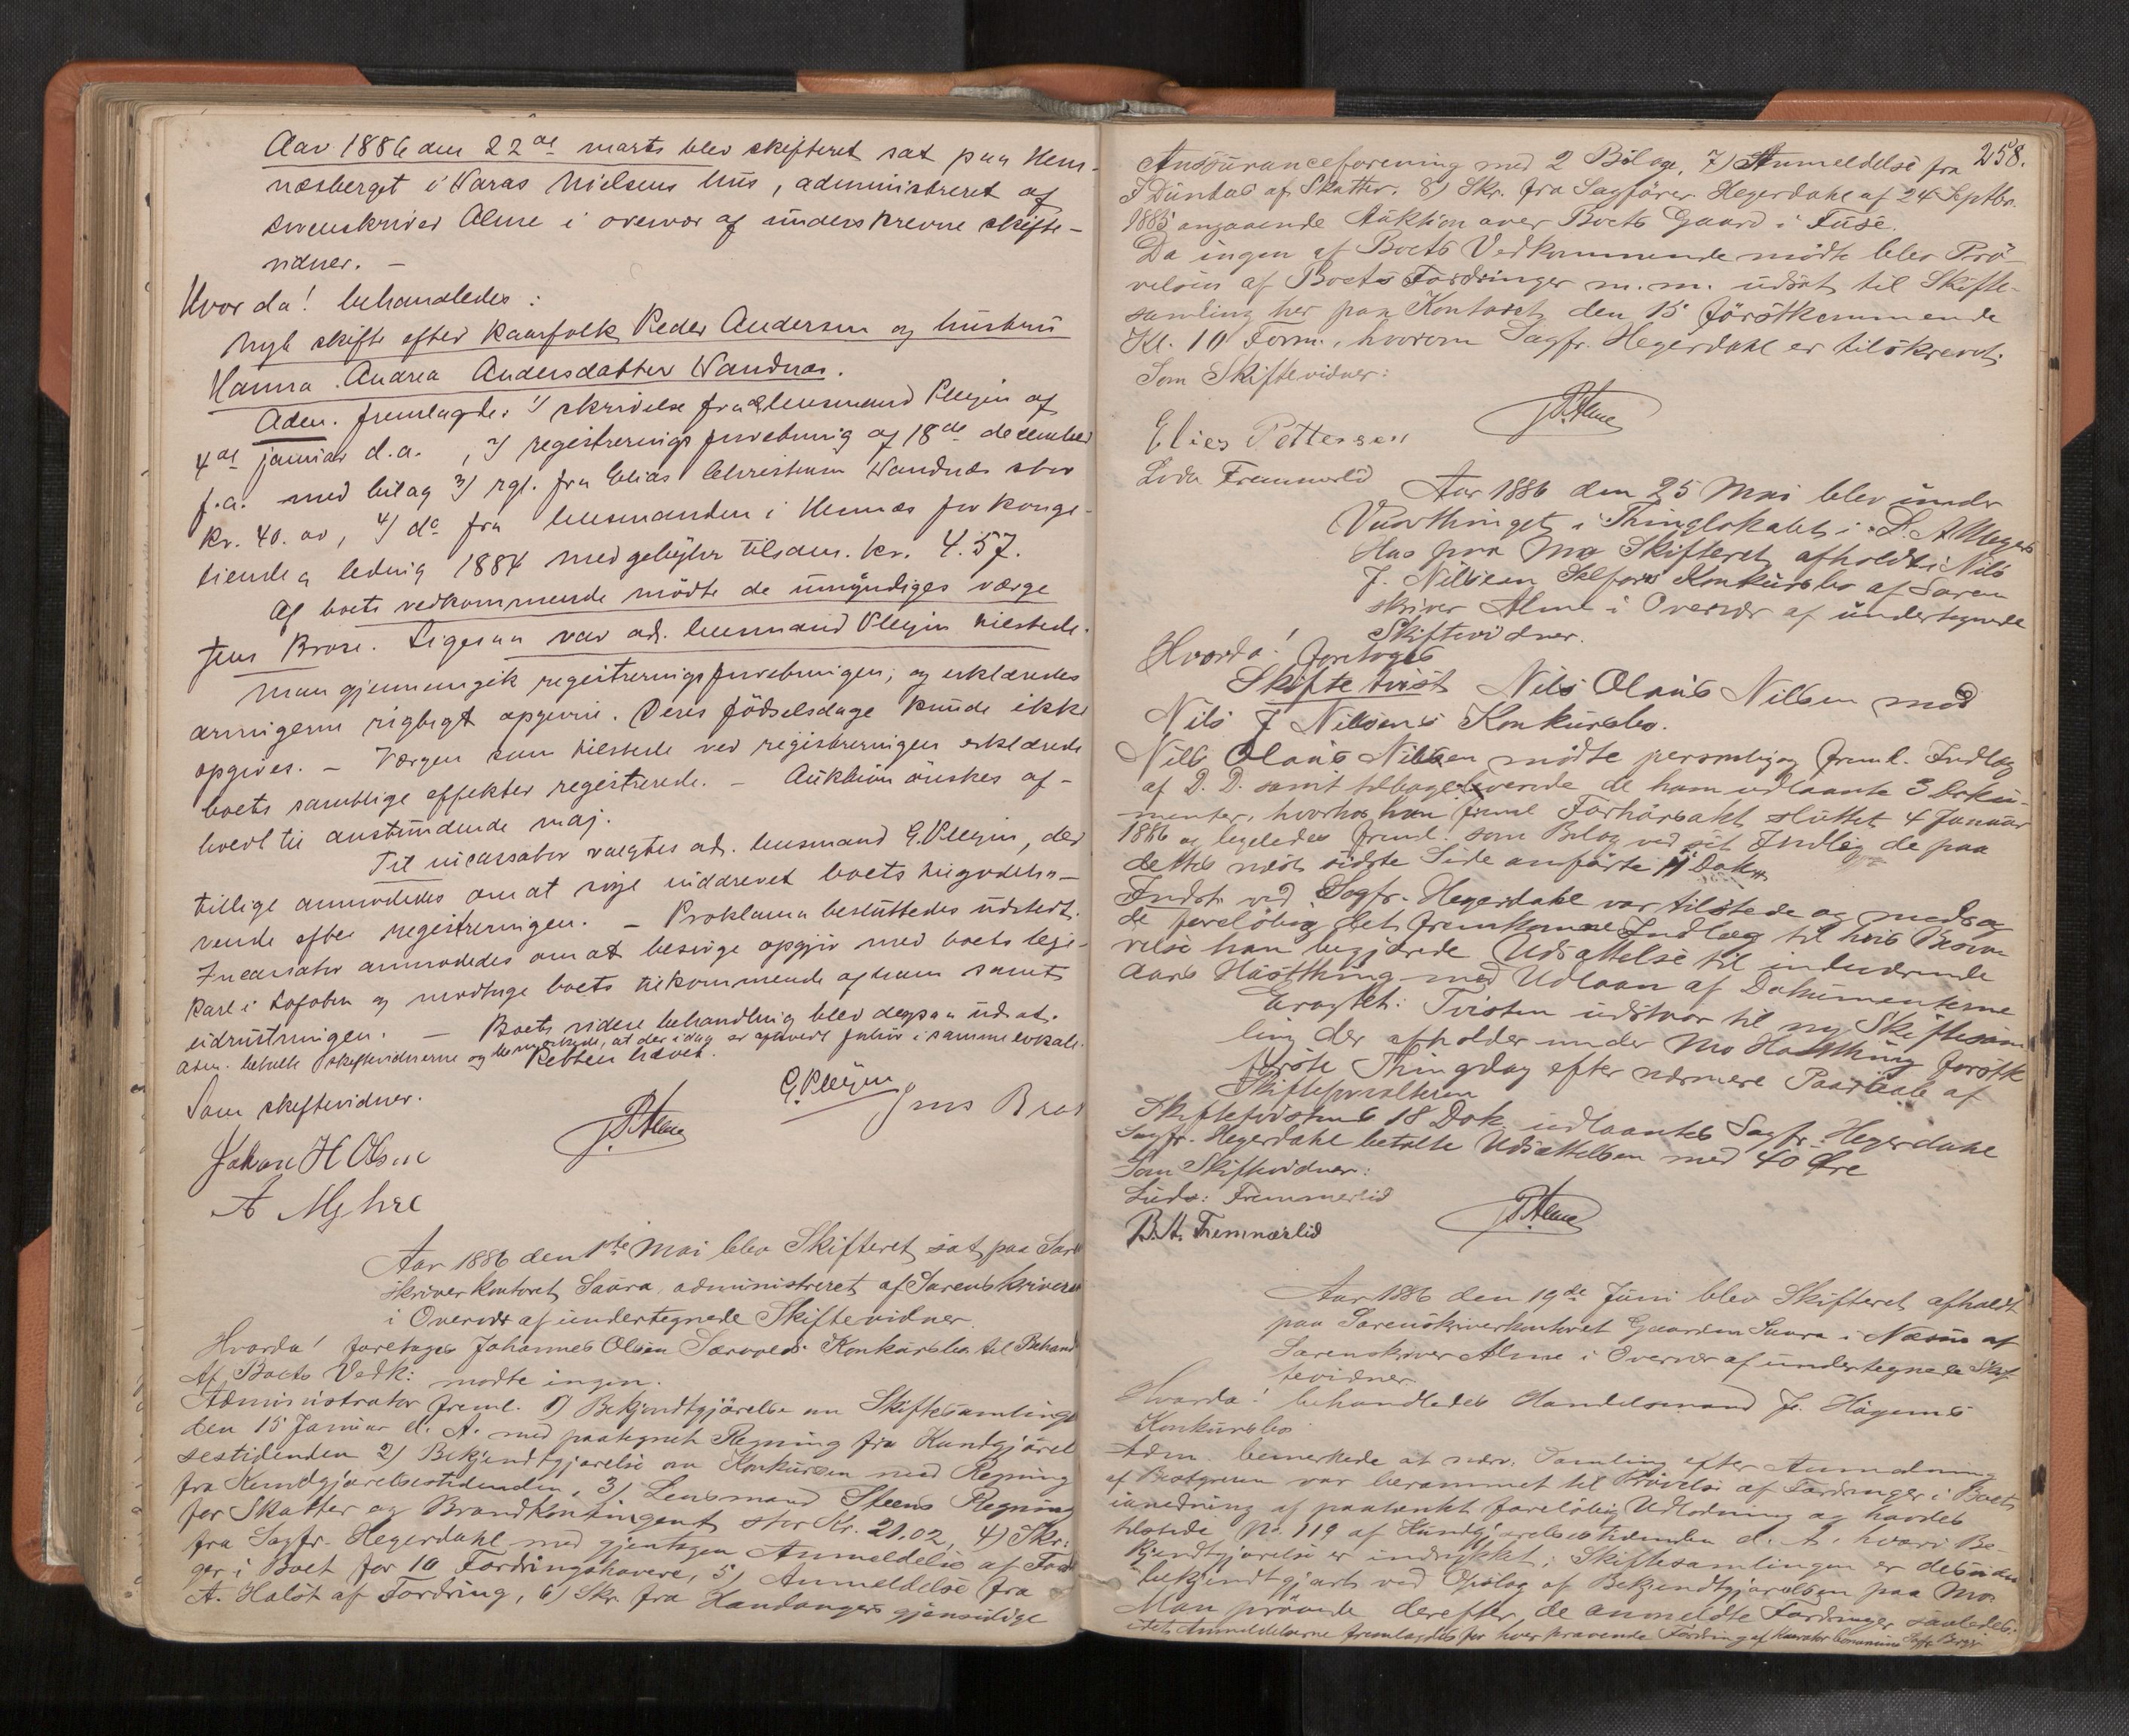 Aar 1886 den 22de marts blev skifteret sat paa Hem-
næsberget i Waras Nielsens hus, administreret af
sorenskriver Alme i overvær af underskrevne skifte-
vidner. —
Hvor da! behandledes:
Nyt skifte efter kaarfolk Peder Andersen og hustru
Hanna Andrea Andersdatter Wandnæs.
Adm. fremlagde: 1) skrivelse fra lensmand Pleym af
4de januar d.a. , 2) registreringsforretning af 18de december
f.a. med bilag 3) rgl. fra Elias Christensen Wandnæs stor
kr. 40. 00, 4) do fra lensmanden i Hemnæs for konge-
tiende a ledvig 1884 med gebyhr tilsam. kr. 4.57.
Af boets vedkommende mödte de umyndiges værge
Jens Brose. Ligesaa var ad. lensmand Pleym tilstede.
Man gjennemgik registreringsforretningen, og erklæredes
arvingerne rigtigt opgivne. Deres födselsdage kunde ikke
opgives. — Værgen som tilstede ved registreringen erklærede
boets samtlige effekter registrerede. — Auktion önskes af-
holdt til anstundende maj.
Til incassator valgtes ad. lensmand G. Pleym, der
tillige anmodedes om at söge inddrevet boets tilgodeha-
vende efter registreringen. — Proklama besluttedes udstedt.
Incassator anmodedes om at besörge opgjör med boets leje-
karl i Lofoten og modtage boets tilkommende af ham samt
udrustningen. — Boets videre behandling blev derpaa udsat.
Adm. betalte skiftevidnerne og bemærkede, at der idag er afholdt julior i samme lokale.
Retten hævet.
Som skiftevidner.
G. Pleym
Jens Bros
Johan H Olsen
A Myhre
Aar 1886 den 1ste Mai blev Skifteret sat paa Soren
skriverkontoret Saura, administreret af Sorenskriveren
i Overvær af undertegnede Skiftevidner.
Hvorda! foretoges Johannes Olsen Sörvolds Konkursbo til Behand
Af Boets Vedk: mødte ingen.
Administrator freml. 1) Bekjendtgjörelse om Skiftesamlings
den 15 Januar d. A. med paategnet Regning fra Kundgjörel
sestidenden 2) Bekjendtgjörelse om Konkursen med Regning
fra Kundgjørelsestidenden, 3) Lensmand Steens Regning
for Skatter og Brandkontingent stor Kr. 21.02, 4) Skr:
fra Sagfr. Hegerdahl med gjentagen Anmeldelse af Ford
ger i Boet for 10 Fordringshavere, 5) Anmeldelse fra
A. Halst af Fordring, 6) Skr. fra Handangers gjensidige
258.
Assuranceforening med 2 Bilage, 7) Anmeldelse fra
J Dundas af Skatter. 8) Skr. fra Sagfører Hegerdahl af 24 Septbr.
1885 angaaende Auktion over Boets Gaard i Fuse.
Da ingen af Boets Vedkommende mödte blev Prö-
velsen af Boets Fordringer m. m. udsat til Skifte-
samling her paa Kontoret den 15 förstkommende
Kl. 10 Form., hvorom Sagfr. Hegerdahl er tilskrevet.
Som Skiftevidner:
Elies Pettersen
Lodv Fremmerlid
Aar 1886 den 25 Mai blev under
Vaarthinget i Thinglokalet i L. A Meyers
Hus paa Mo Skifteret afholdt i Nils
J. Nilsens Selfors Konkursbo af Soren
skriver Alme i Overvær af undertegnede
Skiftevidner.
Hvorda! foretoges
Skifte tvist Nils Olaus Nilsen mod
Nils J Nilsens Konkursbo.
Nils Olaus Nilsen mödte personlig og freml. Indlæg
af D. D. samt tilbageleverede de ham udlaante 3 Doku-
menter, hvorhos han freml Forhörsakt sluttet 4 Januar
1886 og ligeledes freml. som Bilag ved sit Indlæg de paa
dettes næst sidste Side anførte 11 Dok.
Indst. ved Sagfr. Hegerdahl var tilstede og modsag
de foreløbig det fremkomne Indlæg til hvis Besva-
relse han begjærede Udsættelse til indeværende
Aars Høstthing med Udlaan af Dokumenterne
Eragtet: Tvisten udstaar til ny Skiftesam
ling der afholdes under Mo Høstthing förstk
förste Thingdag efter nærmere Paaraab af
Skifteforvalteren
Skiftetvistens 18 Dok. udlaantes Sagfr. Hegerdahl
Sagfr. Hegerdahl betalte Udsættelsen med 40 Øre
Som Skiftevidner:
Ludv: Fremmerlid
B. A. Fremmerlid
Aar 1886 den 19de Juni blev Skifteret afholdt
paa Sorenskriverkontoret Gaarden Saura i Næsna af
Sorenskriver Alme i Overvær af undertegnede Skif
tevidner.
Hvorda! behandledes Handelsmand J. Hagens
Konkursbo
Adm. bemerkede at nærv. Samling efter Anmodning
af Bestyreren var berammet til Prøvelse af Fordringer i Boets
anledning af paatænkt foreløbig Udlodning og havdes
tilstede No. 119 af Kundgjørelsestidenden d. A. hvori Be-
kjendtgjørelse er indrykket; Skiftesamlingen er desuden
bekjendtgjort ved Opslag af Bekjendtgjørelsen paa Mo.
Man prövede derefter de anmeldte Fordringer saaledes:
idet Anmeldelserne fremlagdes for hver prøvende Fordring af Kurator bonorum Sagfr.